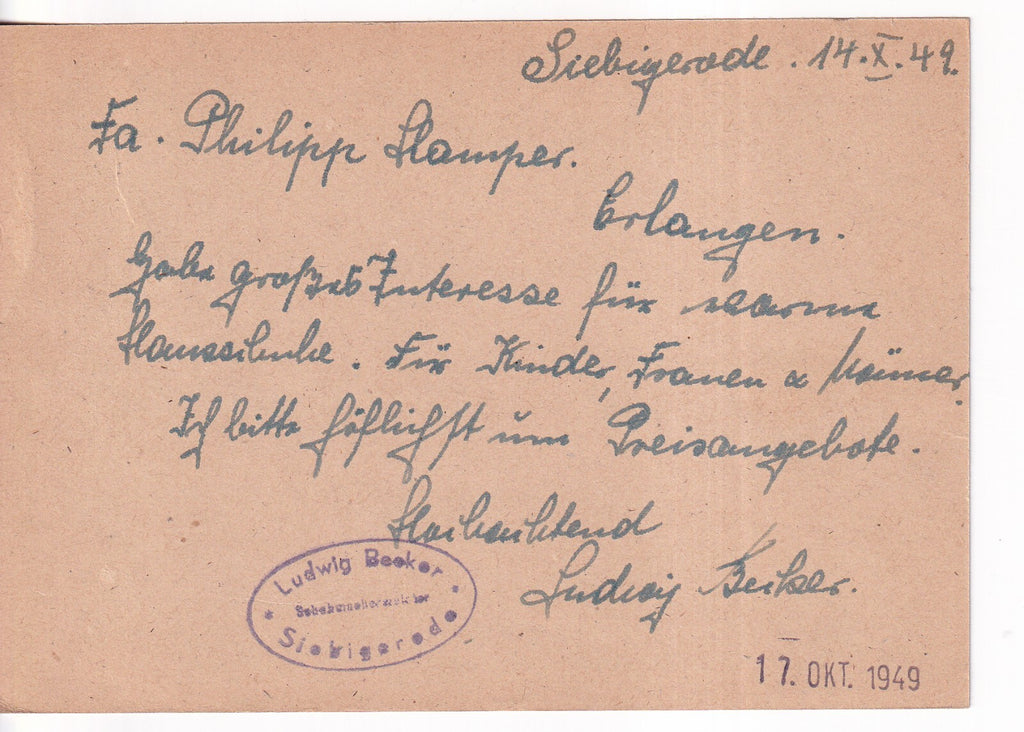 Siebigerode . 14.X.49.
Fa. Philipp Hamper.
Erlangen.
Habe großes Interesse für warme
Hausschuhe. Für Kinder, Frauen & Männer.
Ich bitte höflichst um Preisangebote.
Hochachtend
Ludwig Becker.
Ludwig Becker
Schuhmachermeister
Siebigerode
17. OKT. 1949